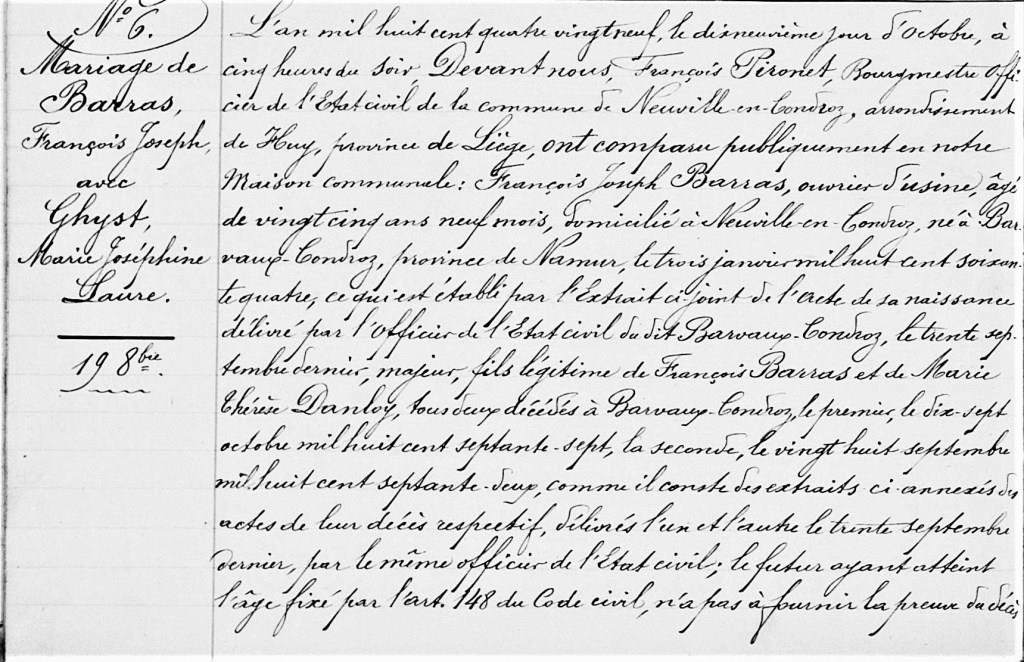 No 6.
Mariage de
Barras,
François Joseph,
avec
Ghyst,
Marie Joséphine
Laure.
19 8bre.
L'an mil huit cent quatre vingt neuf, le dixneuvième jour d'Octobre, à
cinq heures du soir Devant nous, François Pironet, Bourgmestre Offi-
cier de l'Etat civil de la commune de Neuville-en-Condroz, arrondissement
de Huy, province de Liège, ont comparu publiquement en notre
Maison communale: François Joseph Barras, ouvrier d'usine, âgé
de vingt cinq ans neuf mois, domicilié à Neuville-en-Condroz, né à Bar-
vaux-Condroz, province de Namur, le trois janvier mil huit cent soixan-
te quatre, ce qui est établi par l'Extrait ci-joint de l'acte de sa naissance
délivré par l'Officier de l'Etat civil du dit Barvaux-Condroz, le trente sep-
tembre dernier, majeur, fils légitime de François Barras et de Marie
Thérèse Danloy, tous deux décédés à Barvaux-Condroz, le premier, le dix-sept
octobre mil huit cent septante-sept, la seconde, le vingt huit septembre
mil huit cent septante-deux, comme il conste des extraits ci-annexés des
actes de leur décès respectif, délivrés l'un et l'autre le trente septembre
dernier, par le même officier de l'Etat civil; le futur ayant atteint
l'âge fixé par l'art. 148 du Code civil, n'a pas à fournir la preuve du décès